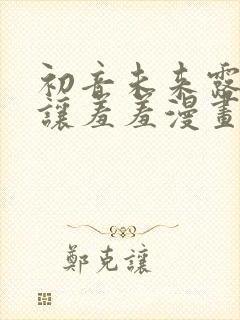 初音未来露
讓羞羞漫畫
鄭克讓